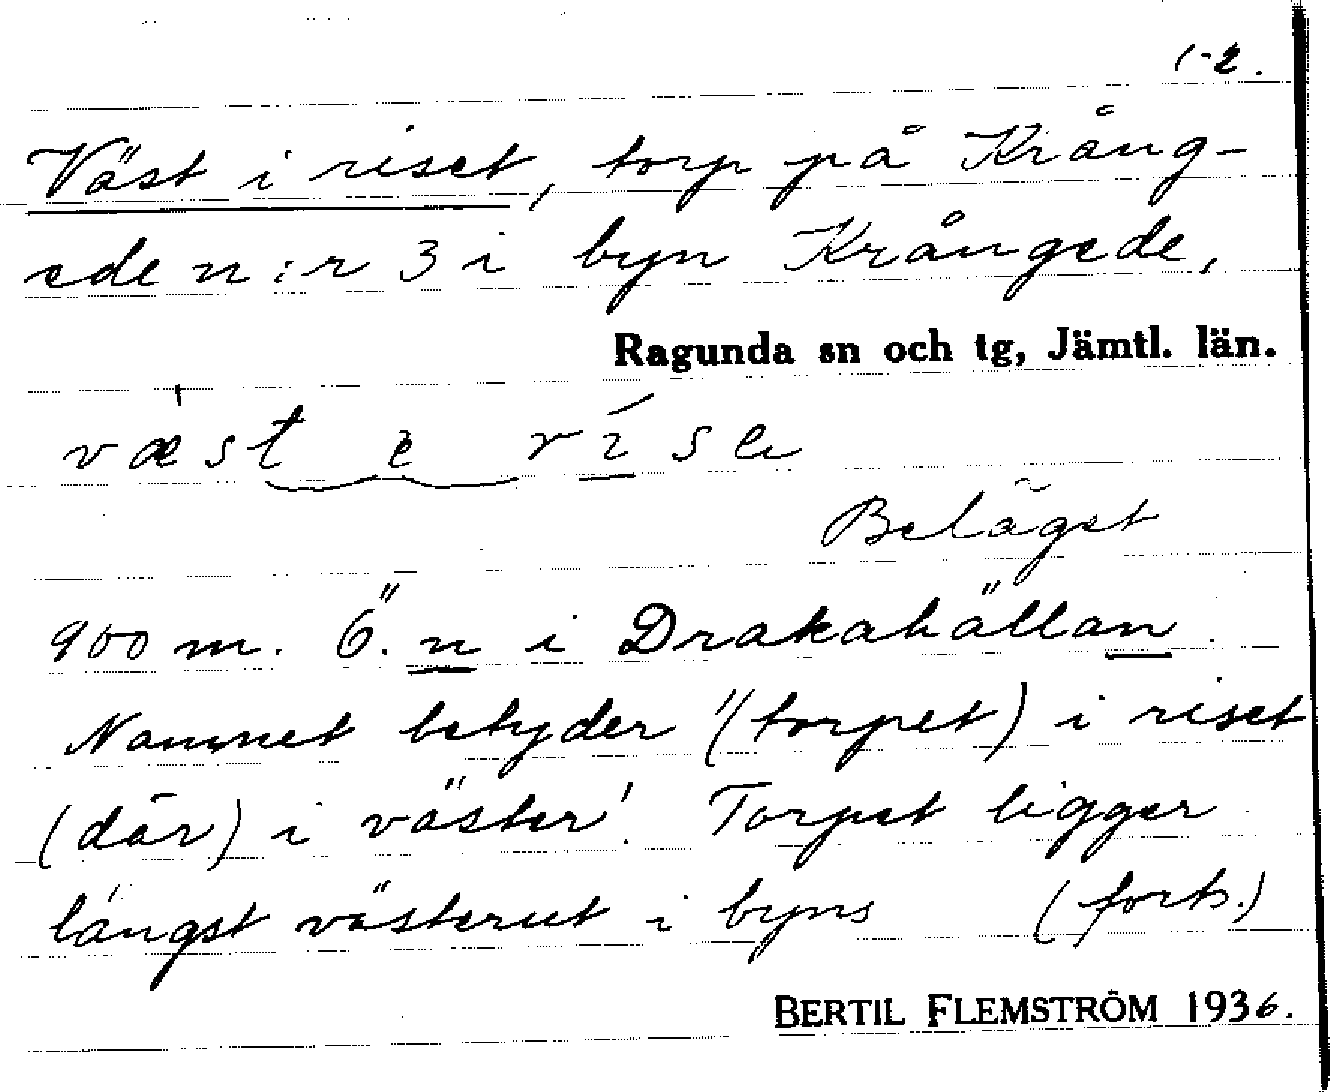 1-2.
Väst i riset, torp på Krång-
ede n:r 3 i byn Krångede,
Ragunda sn och tg, Jämtl. län.
væst e ríse
Beläget
900 m. Ö. n i Drakahällan.
Namnet betyder "(torpet) i riset
(där) i väster'. Torpet ligger
längst västerut i byns (forts.)
BERTIL FLEMSTRÖM 1936.